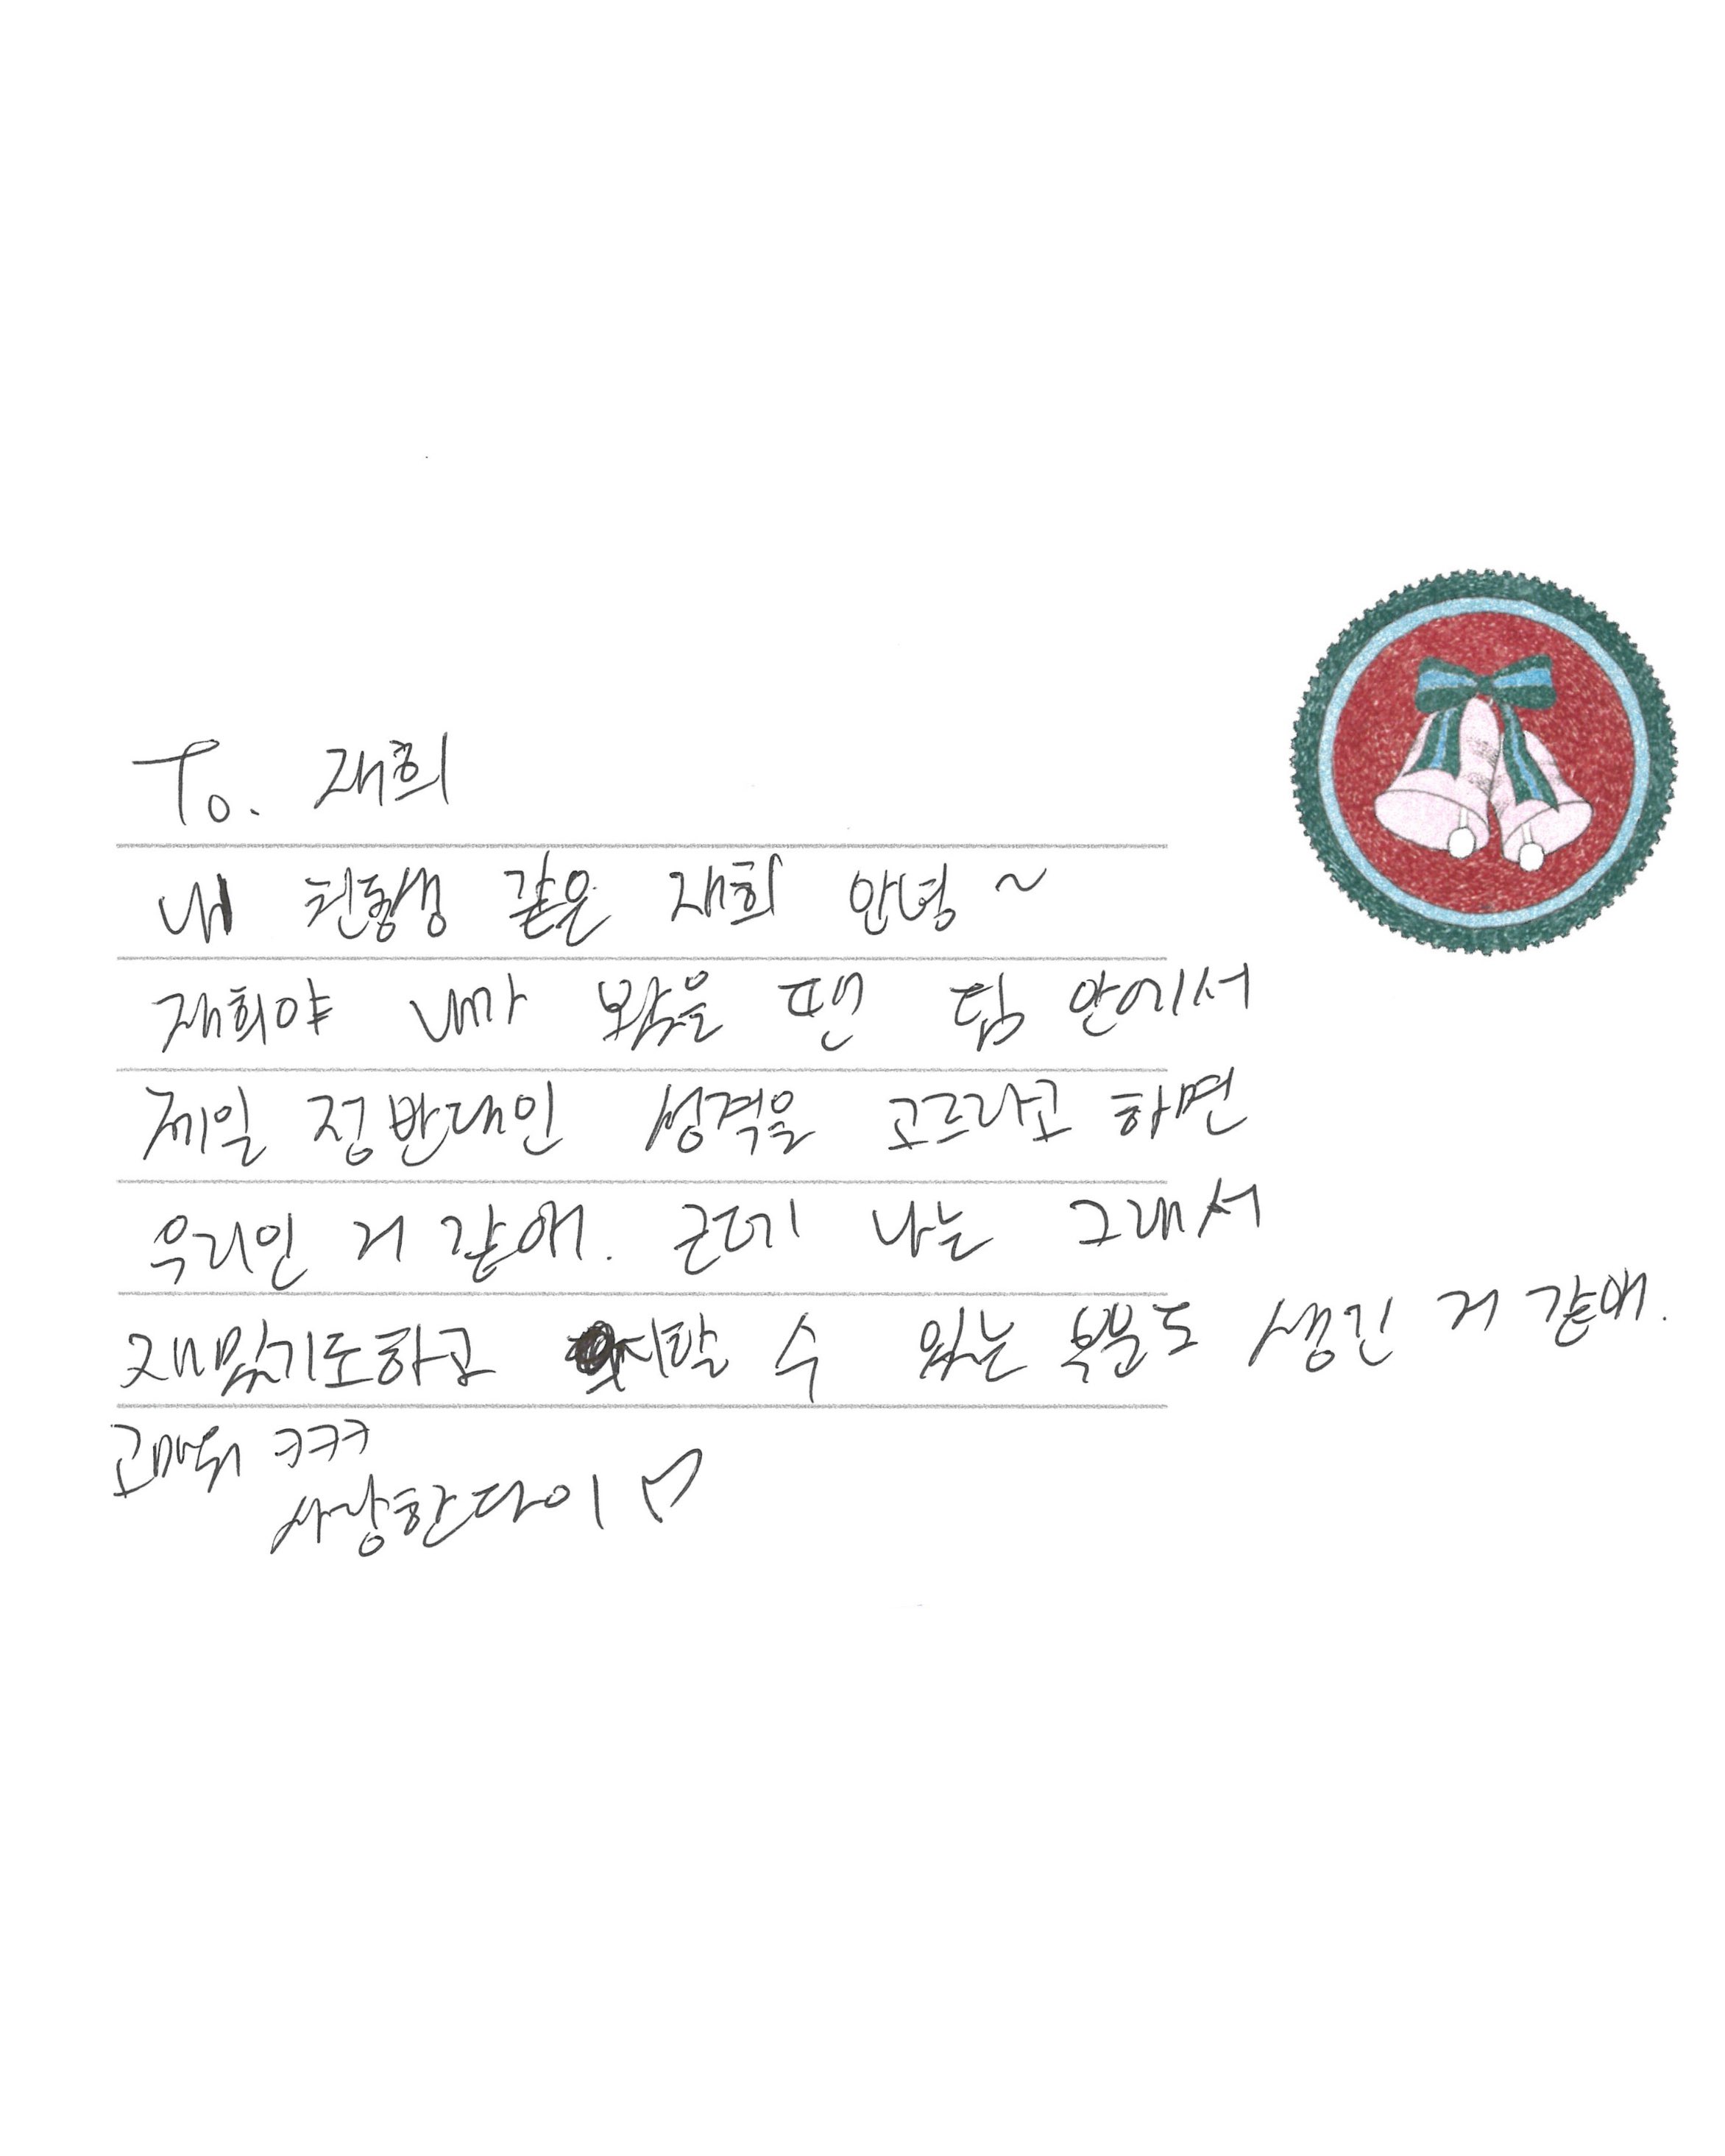 To. 재희
내 친동생 같은 재희 안녕 ~
재희야 내가 봤을 땐 팀 안에서
제일 정반대인 성격을 고르라고 하면
우리인 거 같애. 근데 나는 그래서
재밌기도하고 할 수 있는 부분도 생긴 거 같애.
고마워 ㅋㅋㅋ
사랑한다이 ♡